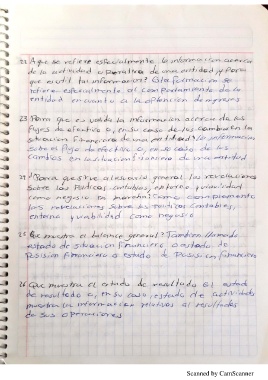 22 A que se refiere especialmente la informacion acerca
de la actividad operativa de una entidad y para
que es util tal informacion? Esta informacion se
refiere especialmente al comportamiento de la
entidad en cuanto a la obtencion de ingresos
23 Para que es valida la informacion acerca de los
flujos de efectivo o, en su caso de los cambios en la
situacion financiera de una entidad? la informacion
sobre el flujo de efectivo o, en su caso de los
cambios en la situacion financiera de una entidad
24 Para que sirve al usuario general las revelaciones
sobre las Politicas contables, entorno y viabilidad
como negocio en marcha? Como complemento
las revelaciones sobre politicas contables,
entorno y viabilidad como negocio
25 Que muestra el balance general? Tambien llamado
estado de situacion financiero o estado de
Posision financiera o estado de Posision financiera
26 Que muestra el estado de resultado el estado
de resultado o, en su caso, estado de actividades
muestra la informacion relativa al resultados
de sus operaciones
Scanned by CamScanner